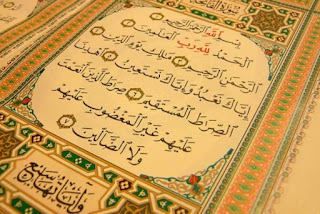 بِسْمِ ٱللَّهِ ٱلرَّحْمَٰنِ ٱلرَّحِيمِ ١
ٱلْحَمْدُ لِلَّهِ رَبِّ ٱلْعَٰلَمِينَ ٢
ٱلرَّحْمَٰنِ ٱلرَّحِيمِ ٣ مَٰلِكِ يَوْمِ ٱلدِّينِ ٤
إِيَّاكَ نَعْبُدُ وَإِيَّاكَ نَسْتَعِينُ ٥ ٱهْدِنَا
ٱلصِّرَٰطَ ٱلْمُسْتَقِيمَ ٦ صِرَٰطَ ٱلَّذِينَ أَنْعَمْتَ
عَلَيْهِمْ غَيْرِ ٱلْمَغْضُوبِ عَلَيْهِمْ
وَلَا ٱلضَّآلِّينَ ٧
وآياتها سبع